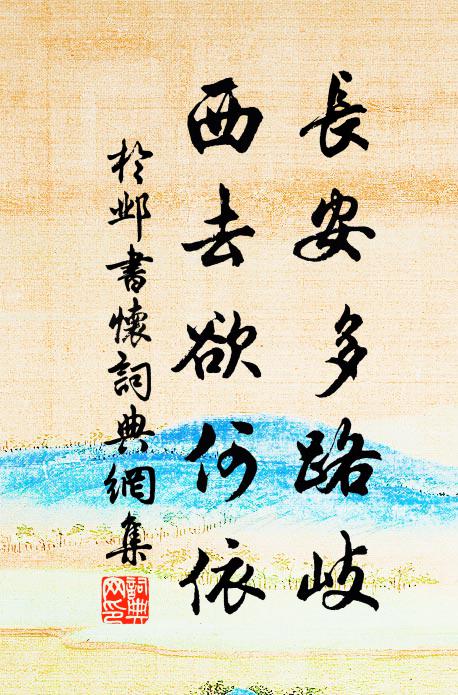 長安多路岐
西去欲何依
於邺書懷詞典網集
詞典
网印